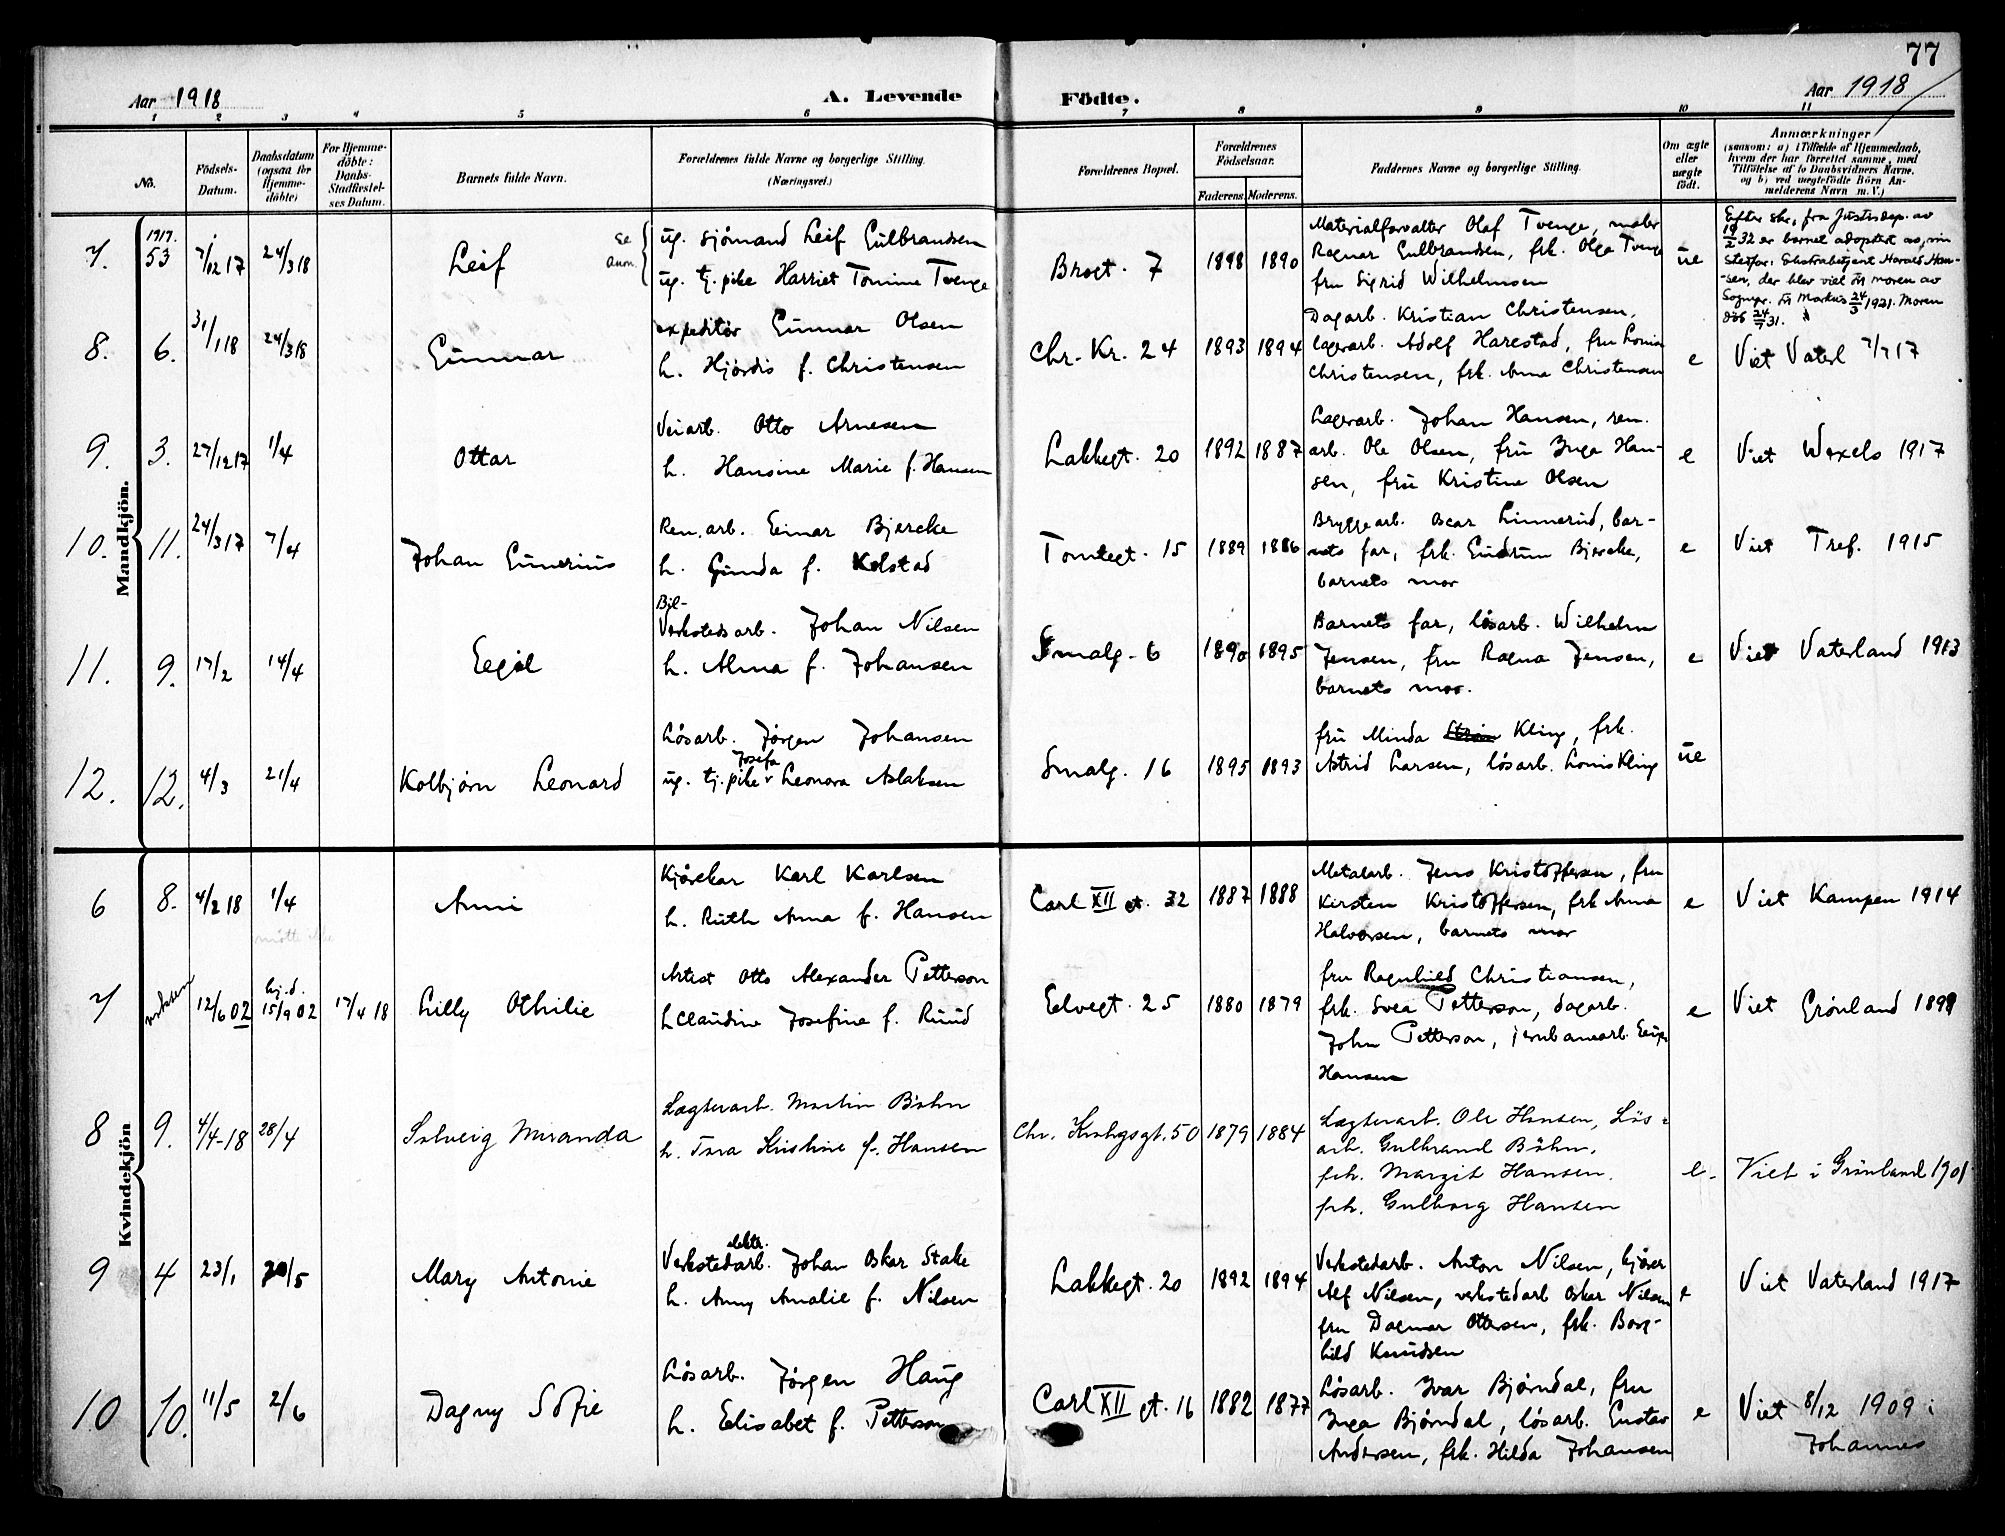 77
Aar 1918
A. Levende Födte.
Aar 1918
1 2 3 4 5 6 7 8 9 10 11
No.
Födsels-Datum.
Daabsdatum (ogsaa for Hjemme-döbte)
For Hjemme-döbte: Daabs-Stadfæstel-ses Datum.
Barnets fulde Navn.
Forældrenes fulde Navne og borgerlige Stilling. (Næringsvei.)
Forældrenes Bopæl.
Forældrenes Födselsaar.
Faderens. Moderens.
Faddernes Navne og borgerlige Stilling.
Om ægte eller uægte födt.
Anmærkninger
(saasom: a) i Tilfælde af Hjemmedaab,
hvem der har forrettet samme, med
Tilföielse af to Daabsvidners Navne,
og b) ved uægtefödte Börn An-
melderens Navn m. V.)
Mandkjön.
7. 1917. 53 7/12 17 24/3 18 Leif se anm.
ug. sjømand Leif Gulbrandsen
ug. tj. pike Harriet Tomine Tvenge
Brogt. 7 1898 1890
Materialforvalter Olaf Tvenge, maler
Ragnar Gulbrandsen, frk. Olga Tvenge
fru Sigrid Wilhelmsen
ue
Efter skr. fra Justisdep. av
19/2 32 er barnet adoptert av sin
stetfar: Ekstrabetjent Harald Han-
sen, der blev viet til moren av
Sognepr. til Markus 24/3 1921. Moren
død 24/7 31.
8. 6. 31/1 18 24/3 18 Gunnar
expeditør Gunnar Olsen
h. Hjørdis f. Christensen
Chr. Kr. 24 1893 1894
Dagarb. Kristian Christensen,
lagerarb. Adolf Harestad, fru Lovise
Christensen, frk. Anna Christensen
e Viet Vaterl 7/7 17
9. 3. 27/12 17 1/4 Ottar
Veiarb. Otto Arnesen
h. Hansine Marie f. Hansen
Lakkegt. 20 1892 1887
Lagerarb. Johan Hansen, ren.
arb. Ole Olsen, fru Inga Han-
sen, fru Kristine Olsen
e Viet Wexels 1917
10. 11. 24/3 17 7/4 Johan Gunerius
Ren. arb. Einar Bjercke
h. Gunda f. Kolstad
Tomtegt. 15 1889 1886
Bryggearb. Oscar Linnerud, bar-
nets far, frk. Gudrun Bjercke,
barnets mor
e Viet Tref. 1915
11. 9. 17/2 14/4 Egil
Bil-
Verkstedsarb. Johan Nilsen
h. Alma f. Johansen
Smalg. 6 1890 1895
Barnets far, løsarb. Wilhelm
Jensen, fru Ragna Jensen,
barnets mor.
e Viet Vaterland 1913
12. 12. 4/3 21/4 Kolbjørn Leonard
Løsarb. Jørgen Johansen
Josefa
ug. tj. pike v Leonora Aslaksen
Smalg. 16 1895 1893
fru Minda Kling, frk.
Astrid Larsen, løsarb. Louis Kling
ue
Kvindekjön
6 8. 4/2 18 1/4 Anni
møtte ikke
Kjørekar Karl Karlsen
h. Ruth Anna f. Hansen
Carl XII gt. 32 1887 1888
Metalarb. Jens Kristoffersen, fru
Kirsten Kristoffersen, frk Anna
Halvorsen, barnets mor
e Viet Kampen 1914
7 12/6 02 hj.d. 15/9 02 17/4 18 Lilly Othilie
Artist Otto Alexander Petterson
h Claudine Josefine f. Ruud
Elvegt. 25 1880 1879
fru Ragnhild Christiansen,
frk. Svea Petterson, dagarb.
John Petterson, jernbanearb.
Hansen
e Viet Grønland 1898
8 9. 4/4-18 28/4 Solveig Miranda
Lægterarb. Martin Bøhn
h. Tora Kristine f. Hansen
Chr. Krohgsgt. 50 1879 1884
Lægterarb. Ole Hansen, Løs-
arb. Gulbrand Bøhn,
frk. Margit Hansen.
frk. Gulborg Hansen
e. Viet i Grønland 1901
9 4 23/1 20/5 Mary Antonie
elektr.
Verkstedarb. Johan Oskar Stake
h. Anny Amalie f. Nilsen
Lakkegt. 20 1892 1894
Verkstedarb. Anton Nilsen, kjører
Alf Nilsen, verkstedarb Oskar Nilsen
fru Dagmar Ottersen, frk. Borg-
hild Knudsen
e Viet Vaterland 1917
10 10. 11/5 2/6 Dagny Sofie
Løsarb. Jørgen Haug
h. Elisabet f. Petterson
Carl XII gt. 16 1882 1877
Løsarb. Ivar Bjørndal, fru
Inga Bjørndal, løsarb. Gustav
Andersen, frk. Hilda Johansen
e Viet 8/12 1909 i
Johannes